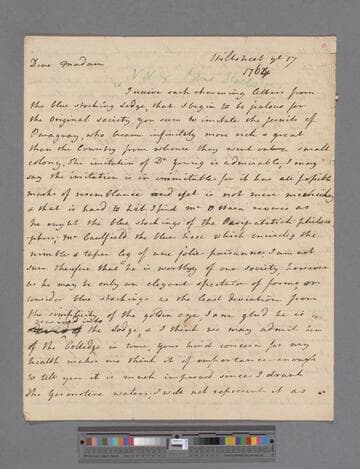 Hillstreet ye 17
1764
Dear Madam
I receive such charming letters from
the blue stocking Lodge, that I begin to be jealous for
the original society, you seem to imitate the Jesuits of
Paraguay, who became infinitely more rich & great
than the Country from whence they went a small
colony, The imitation of Dr Young is admirable, I may
say the imitation is inimitable for it has all possible
marks of resemblance and yet is not mere mimickry
& that is hard to hit. I find Mr reveres as
he ought the blue stockings of the philoso
phers; Mr Caulfield the blue hose which encircles the
nimble & taper leg of une jolie paisanne, I am not
sure therefore that he is worthy of our society, however
as he may be only an elegant spectator of forms, or
consider blue stockings as the least deviation from
the simplicity of the golden age, I am glad he is
received into the Lodge, & I think we may admit him
of the Colledge in time, your kind concern for my
health makes me think it of importance enough
to tell you it is much improved since I drank
the Geronstere waters; I will not represent it as